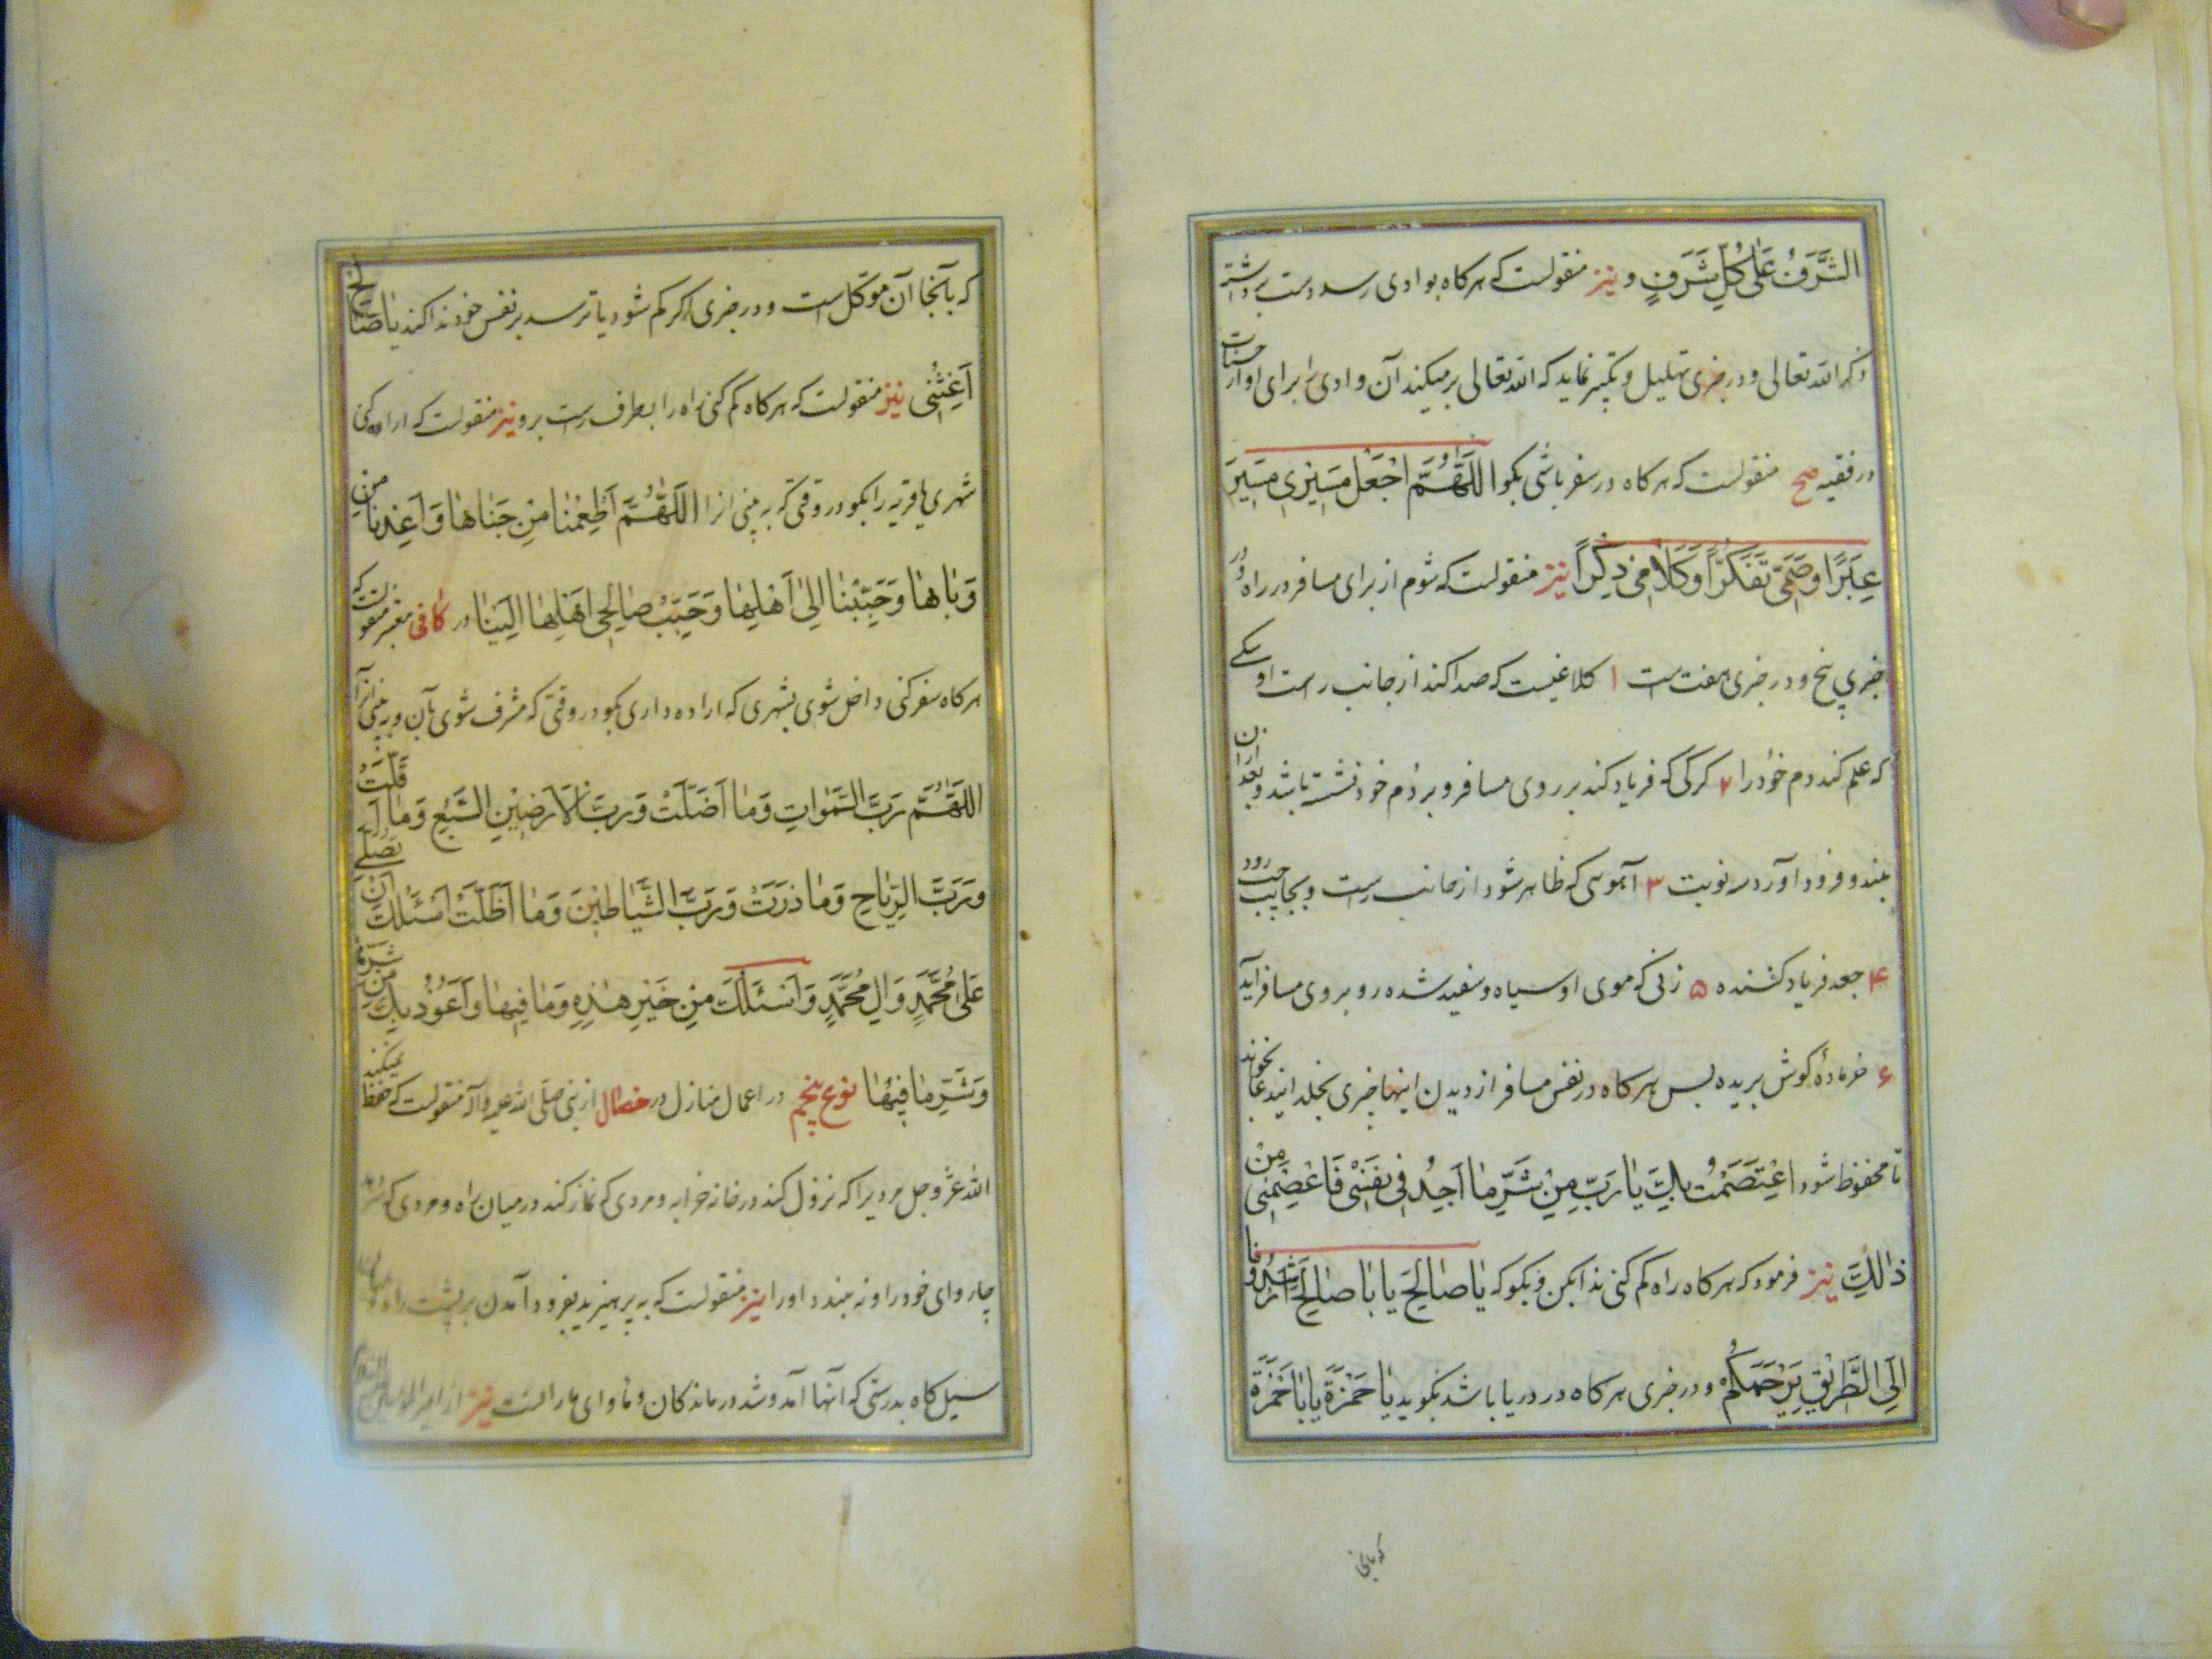 الشَّرَفُ عَلىٰ كُلِّ شَرَفٍ و نیز منقولست که هرکاه بوادی رسد دست برداشته
ذکر الله تعالی و در خبری تهلیل و تکبیر نماید که الله تعالی پر میکند آن وادی را برای او از حسنات
در فقیه صح منقولست که هرکاه در سفر باشی بکو اللَّهُمَّ اجْعَلْ مَسِيرِي مَسِيرَ
عِبَرًا وَصَمْتِي تَفَكُّرًا وَكَلَامِي ذِكْرًا نیز منقولست که شوم از برای مسافر در راه در
خبری پنج و در خبری هفت است ۱ کلاغیست که صدا کند از جانب راست او سکی
که علم کند دم خود را ۲ کرکی که فریاد کند بر روی مسافر و بر دُم خود نشسته باشد و بعد از آن
بلند و فرود آورد سه نوبت ۳ آهوئی که ظاهر شود از جانب راست و بجانب چپ رود
۴ جغد فریاد کننده ۵ زنی که موی او سیاه و سفید شده رو بروی مسافر آید
۶ خر مادهٔ کوش بریده پس هرکاه در نفس مسافر از دیدن اینها خبری بخلد ایندعا بخواند
تا محفوظ شود اعْتَصَمْتُ بِكَ يَا رَبِّ مِنْ شَرِّ مَا أَجِدُ فِي نَفْسِي فَاعْصِمْنِي مِنْ
ذٰلِكَ نیز فرمود که هرکاه راه کم کنی ندا بکن و بکو که يَا صَالِحُ يَا بَا صَالِحٍ أَرْشِدُونَا
إِلَى الطَّرِيقِ يَرْحَمُكُمْ و در خبری هرکاه در دریا باشد بکوید يَا حَمْزَةُ يَا بَا حَمْزَةَ
که بانجا
که بآنجا آن موکل است و در خبری اکر کم شود یا ترسد بر نفس خود ندا کند يَا صَالِحُ
أَغِثْنِي نیز منقولست که هرکاه کم کنی راه را بطرف راست برو نیز منقولست که اراده کنی
شهری یا قریه را بکو در وقتی که به بینی انرا اللَّهُمَّ أَطْعِمْنَا مِنْ جَنَاهَا وَأَعِذْنَا مِنْ
وَبَاهَا وَحَبِّبْنَا إِلىٰ أَهْلِهَا وَحَبِّبْ صَالِحِي أَهْلِهَا إِلَيْنَا در کافی معتبر منقولست که
هرکاه سفر کنی داخل شوی بشهری که اراده داری بکو در وقتی که مشرف شوی بآن و به بینی آنرا
اللَّهُمَّ رَبَّ السَّمٰوَاتِ وَمَا أَضَلَّتْ وَرَبَّ الْأَرَضِينَ السَّبْعِ وَمَا أَقَلَّتْ
وَرَبَّ الرِّيَاحِ وَمَا ذَرَتْ وَرَبَّ الشَّيَاطِينَ وَمَا أَظَلَّتْ أَسْئَلُكَ أَنْ تُصَلِّيَ
عَلىٰ مُحَمَّدٍ وَآلِ مُحَمَّدٍ وَأَسْئَلُكَ مِنْ خَيْرِ هٰذِهِ وَمَا فِيهَا وَأَعُوذُ بِكَ مِنْ شَرِّهَا
وَشَرِّ مَا فِيهَا نوع پنجم در اعمال منازل در خصال از نبی صلی الله علیه وآله منقولست که حفظ نمیکند
الله عز و جل مردیرا که نزول کند در خانه خرابه و مردی که نماز کند در میان راه و مردی که
چاروای خود را و نه بندد او را نیز منقولست که به پرهیزید بفرود آمدن بر پشت راه
سیل کاه بدرستی که آنها آمد و شد درماندکان و ماوای مارانست نیز از امیر المؤمنین